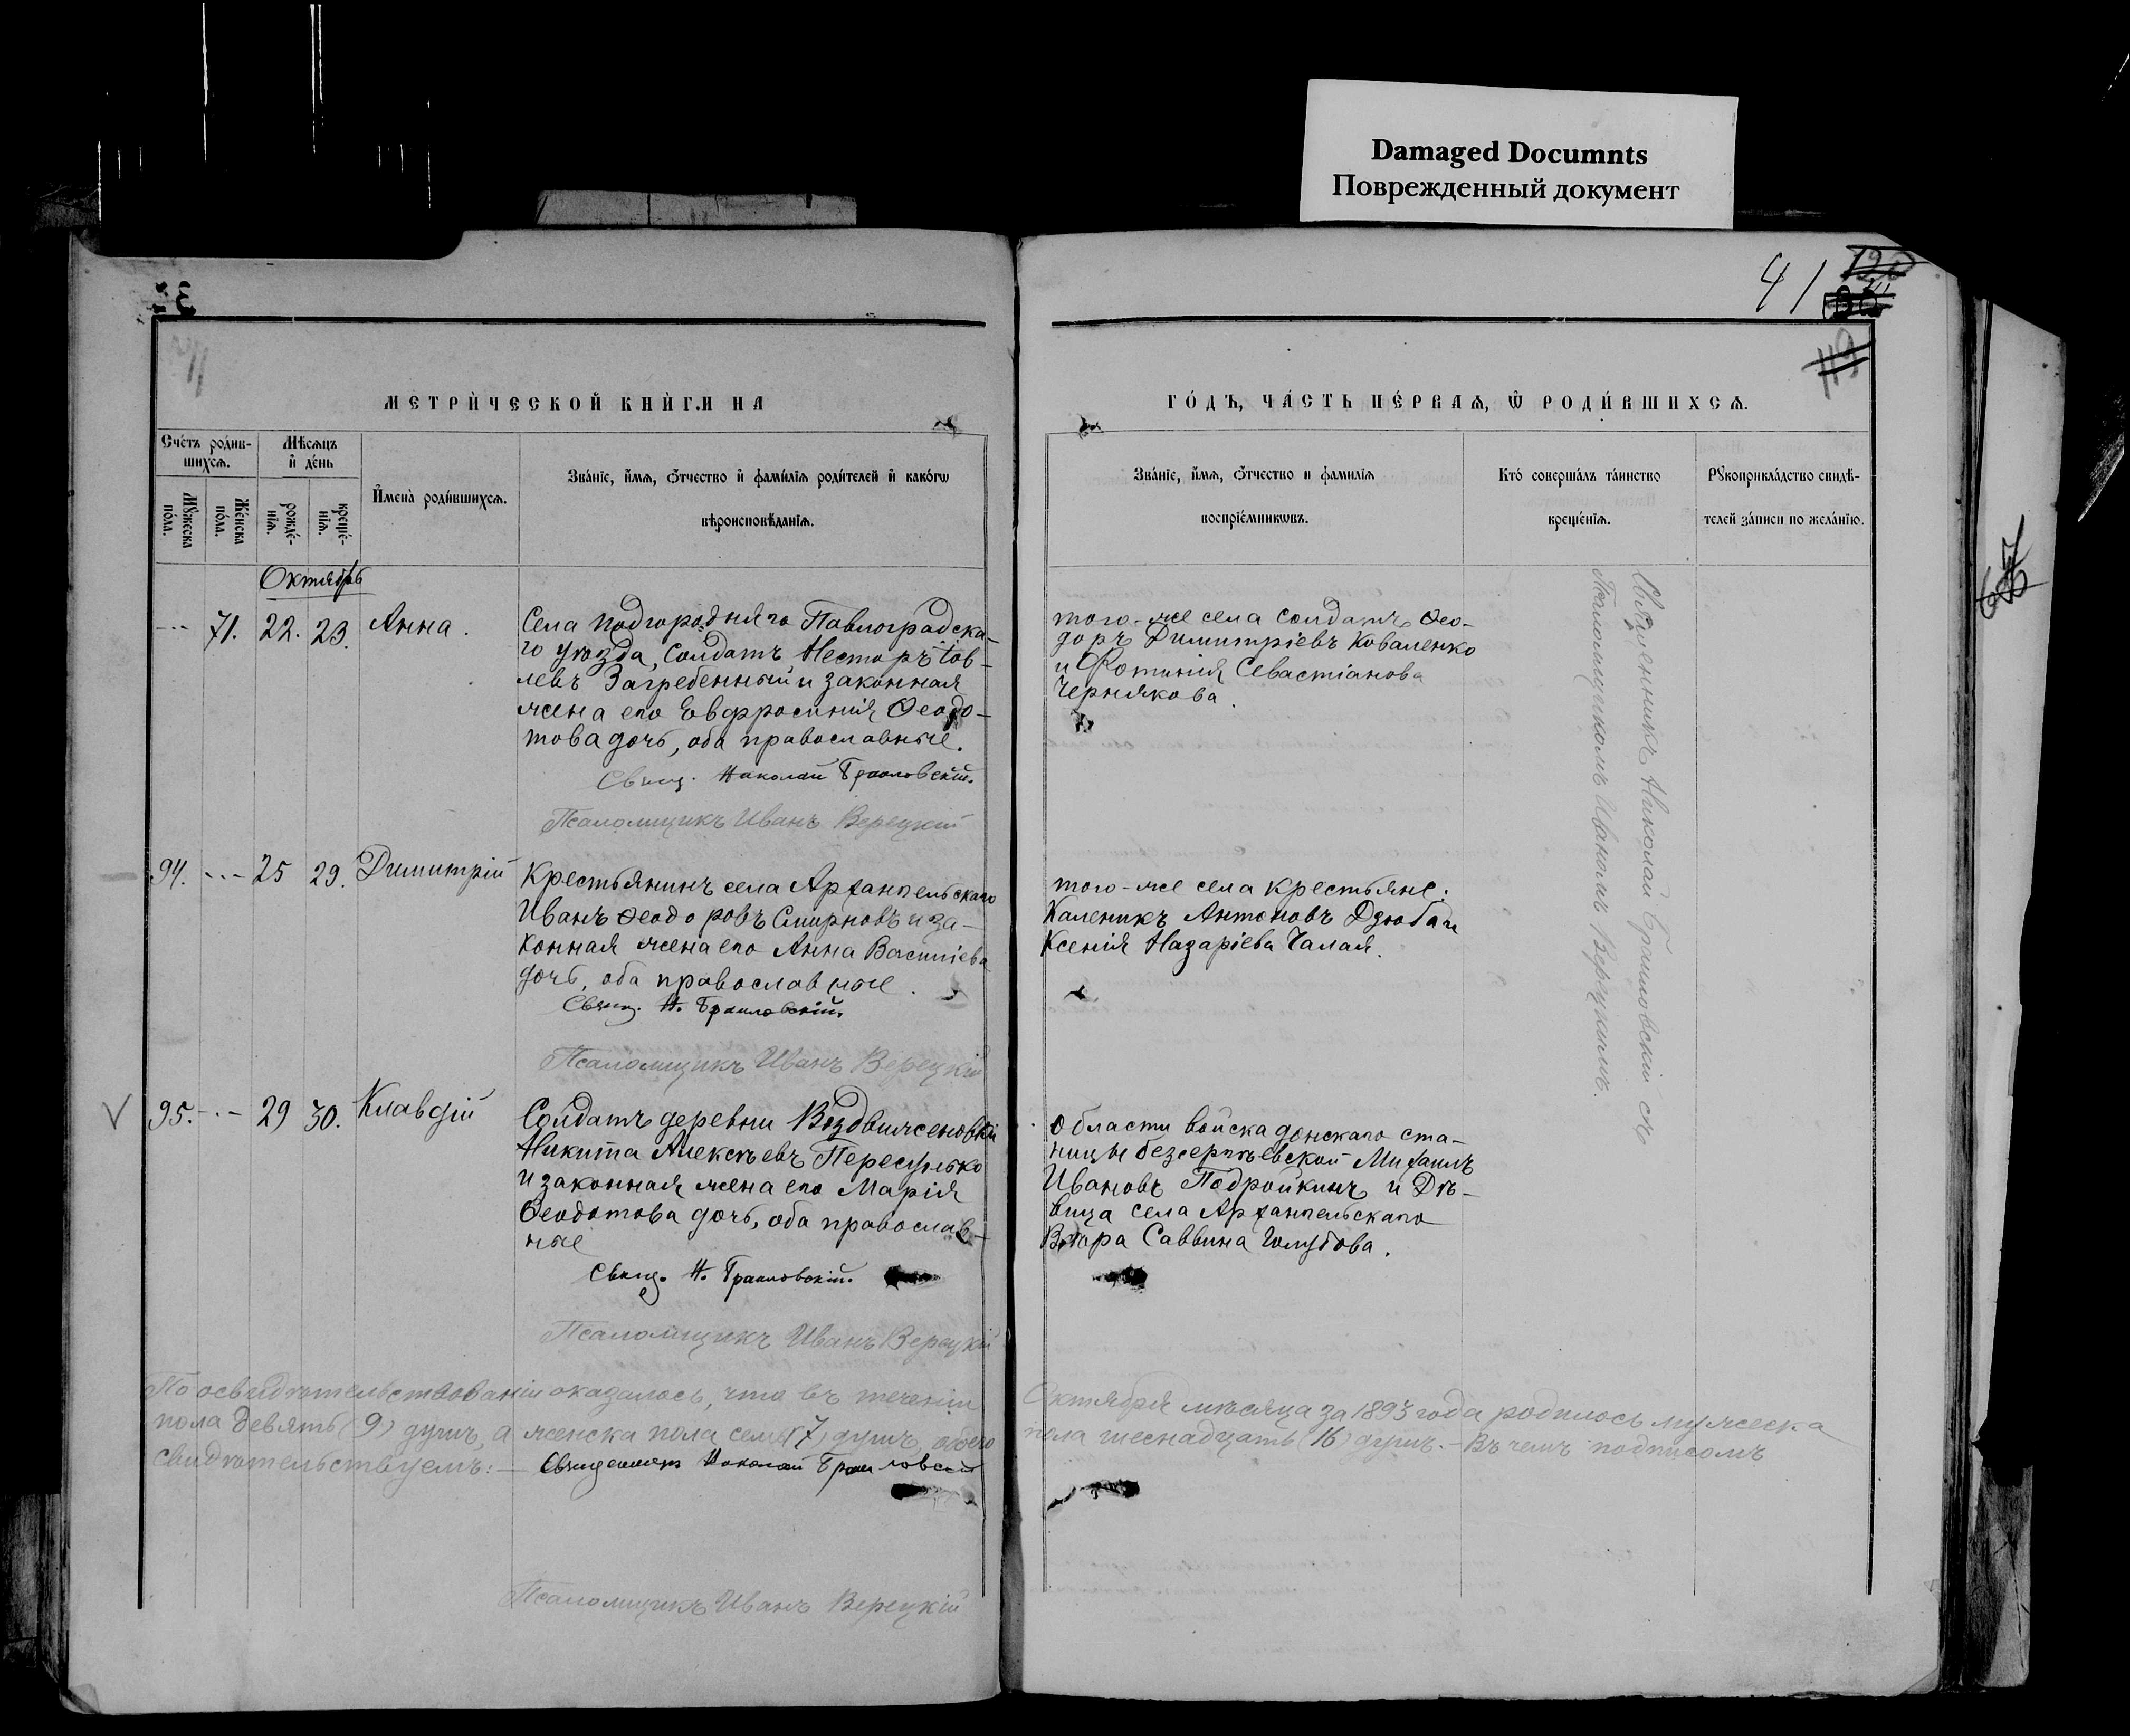 Damaged Documnts
Поврежденный документ
41
119
МЕТРИ́ЧЕСКОЙ КНИ́ГИ НА
ГО́ДЪ, ЧА́СТЬ ПЕ́РВАѦ, Ѡ РОДИ́ВШИХСѦ.
Сче́тъ роди́вшихсѧ.
Мꙋ́жеска по́ла.
Же́нска по́ла.
Мѣ́сѧцъ и҆ де́нь
рожде́нїѧ.
креще́нїѧ.
И҆мена̀ роди́вшихсѧ.
Зва́нїе, и҆́мѧ, ѻ҆́тчество и҆ фами́лїѧ роди́телей и҆ како́гѡ
вѣроисповѣ́данїѧ.
Зва́нїе, и҆́мѧ, ѻ҆́тчество и фамилїѧ
воспрїе́мникѡвъ.
Кто̀ соверша́лъ та́инство
креще́нїѧ.
Рꙋкоприкла́дство свидѣ-
телей за́писи по жела́нїю.
Октябрь
71. 22. 23. Анна.
Села Подгородняго Павлоградска-
го уѣзда, Солдатъ Несторъ Іов-
левъ Загребенный и законная
жена его Евфросинія Ѳеодо-
това дочь, оба православные.
Свящ. Николай Браиловскій.
Псаломщикъ Иванъ Верецкій
того-же села солдатъ Ѳео-
доръ Димитріевъ Коваленко
и Фотинія Севастіанова
Чернякова.
Священникъ Николай Браиловскій съ
Псаломщикомъ Иваномъ Верецкимъ.
94. 25 29. Димитрій
Крестьянинъ села Архангельскаго
Иванъ Ѳеодоровъ Смирновъ и за-
конная жена его Анна Василіева
дочь, оба православные.
Свящ. Н. Браиловскій.
Псаломщикъ Иванъ Верецкій
того-же села крестьяне:
Каленикъ Антоновъ Дзюба и
Ксенія Назаріева Чалая.
V 95. 29 30. Клавдій
Солдатъ деревни Воздвиженовки
Никита Алексѣевъ
и законная жена его Марія
Ѳеодотова дочь, оба православ-
ные
Свящ. Н. Браиловскій.
Псаломщикъ Иванъ Верецкій
Области войска донскаго ста-
ницы Михаилъ
Ивановъ и Дѣ-
вица села Архангельскаго
Саввина Голубова.
По освидѣтельствованіи оказалось, что въ теченіи Октября мѣсяца за 1893 года родилось мужеска
пола девять (9) душъ, а женска пола семь (7) душъ, обоего пола шеснадцать (16) душъ. – Въ чемъ подписомъ
свидѣтельствуемъ: – Священникъ Николай Браиловскій
Псаломщикъ Иванъ Верецкій